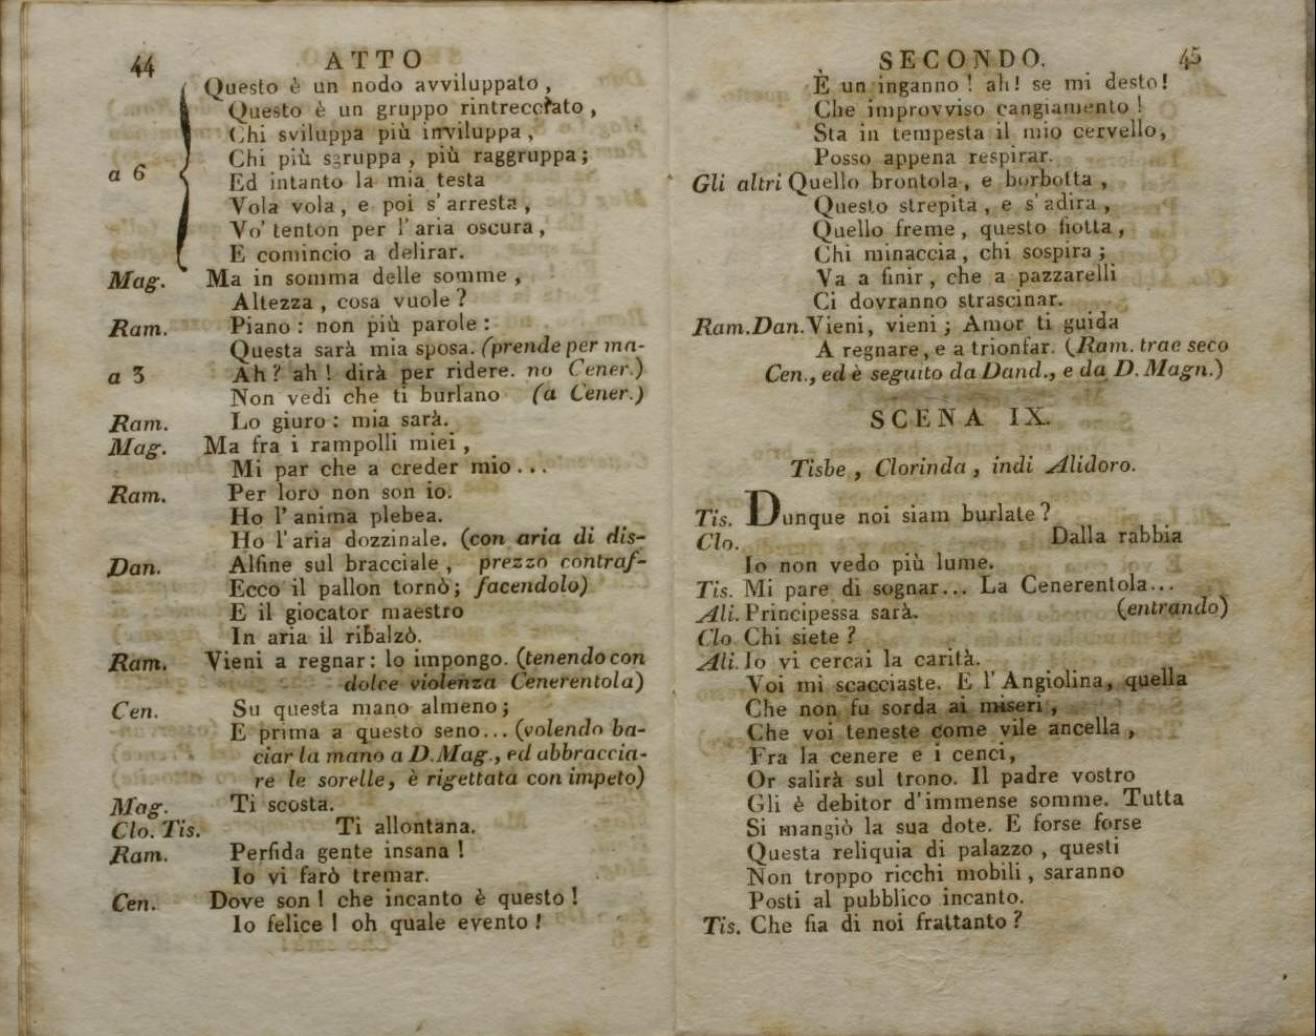 44 ATTO
Questo è un nodo avviluppato,
Questo è un gruppo rintrecciato,
Chi sviluppa più inviluppa,
Chi più sgruppa, più raggruppa;
a 6 Ed intanto la mia testa
Vola vola, e poi s'arresta,
Vo' tenton per l'aria oscura,
E comincio a delirar.
Mag. Ma in somma delle somme,
Altezza, cosa vuole?
Ram. Piano: non più parole:
Questa sarà mia sposa. (prende per ma-
a 3 Ah? ah! dirà per ridere. no Cener.)
Non vedi che ti burlano (a Cener.)
Ram. Lo giuro: mia sarà.
Mag. Ma fra i rampolli miei,
Mi par che a creder mio...
Ram. Per loro non son io.
Ho l'anima plebea.
Ho l'aria dozzinale. (con aria di dis-
Dan. Alfine sul bracciale, prezzo contraf-
Ecco il pallon tornò; facendolo)
E il giocator maestro
In aria il ribalzò.
Ram. Vieni a regnar: lo impongo. (tenendo con
dolce violenza Cenerentola)
Cen. Su questa mano almeno;
E prima a questo seno... (volendo ba-
ciar la mano a D.Mag., ed abbraccia-
re le sorelle, è rigettata con impeto)
Mag. Ti scosta.
Clo. Tis. Ti allontana.
Ram. Perfida gente insana!
Io vi farò tremar.
Cen. Dove son! che incanto è questo!
Io felice! oh quale evento!
SECONDO. 45
È un inganno! ah! se mi desto!
Che improvviso cangiamento!
Sta in tempesta il mio cervello,
Posso appena respirar.
Gli altri Quello brontola, e borbotta,
Questo strepita, e s'adira,
Quello freme, questo fiotta,
Chi minaccia, chi sospira;
Va a finir, che a pazzarelli
Ci dovranno strascinar.
Ram.Dan. Vieni, vieni; Amor ti guida
A regnare, e a trionfar. (Ram. trae seco
Cen., ed è seguito da Dand., e da D. Magn.)
SCENA IX.
Tisbe, Clorinda, indi Alidoro.
Tis. Dunque noi siam burlate?
Clo. Dalla rabbia
Io non vedo più lume.
Tis. Mi pare di sognar... La Cenerentola...
Ali. Principessa sarà. (entrando)
Clo. Chi siete?
Ali. Io vi cercai la carità.
Voi mi scacciaste. E l'Angiolina, quella
Che non fu sorda ai miseri,
Che voi teneste come vile ancella,
Fra la cenere e i cenci,
Or salirà sul trono. Il padre vostro
Gli è debitor d'immense somme. Tutta
Si mangiò la sua dote. E forse forse
Questa reliquia di palazzo, questi
Non troppo ricchi mobili, saranno
Posti al pubblico incanto.
Tis. Che fia di noi frattanto?